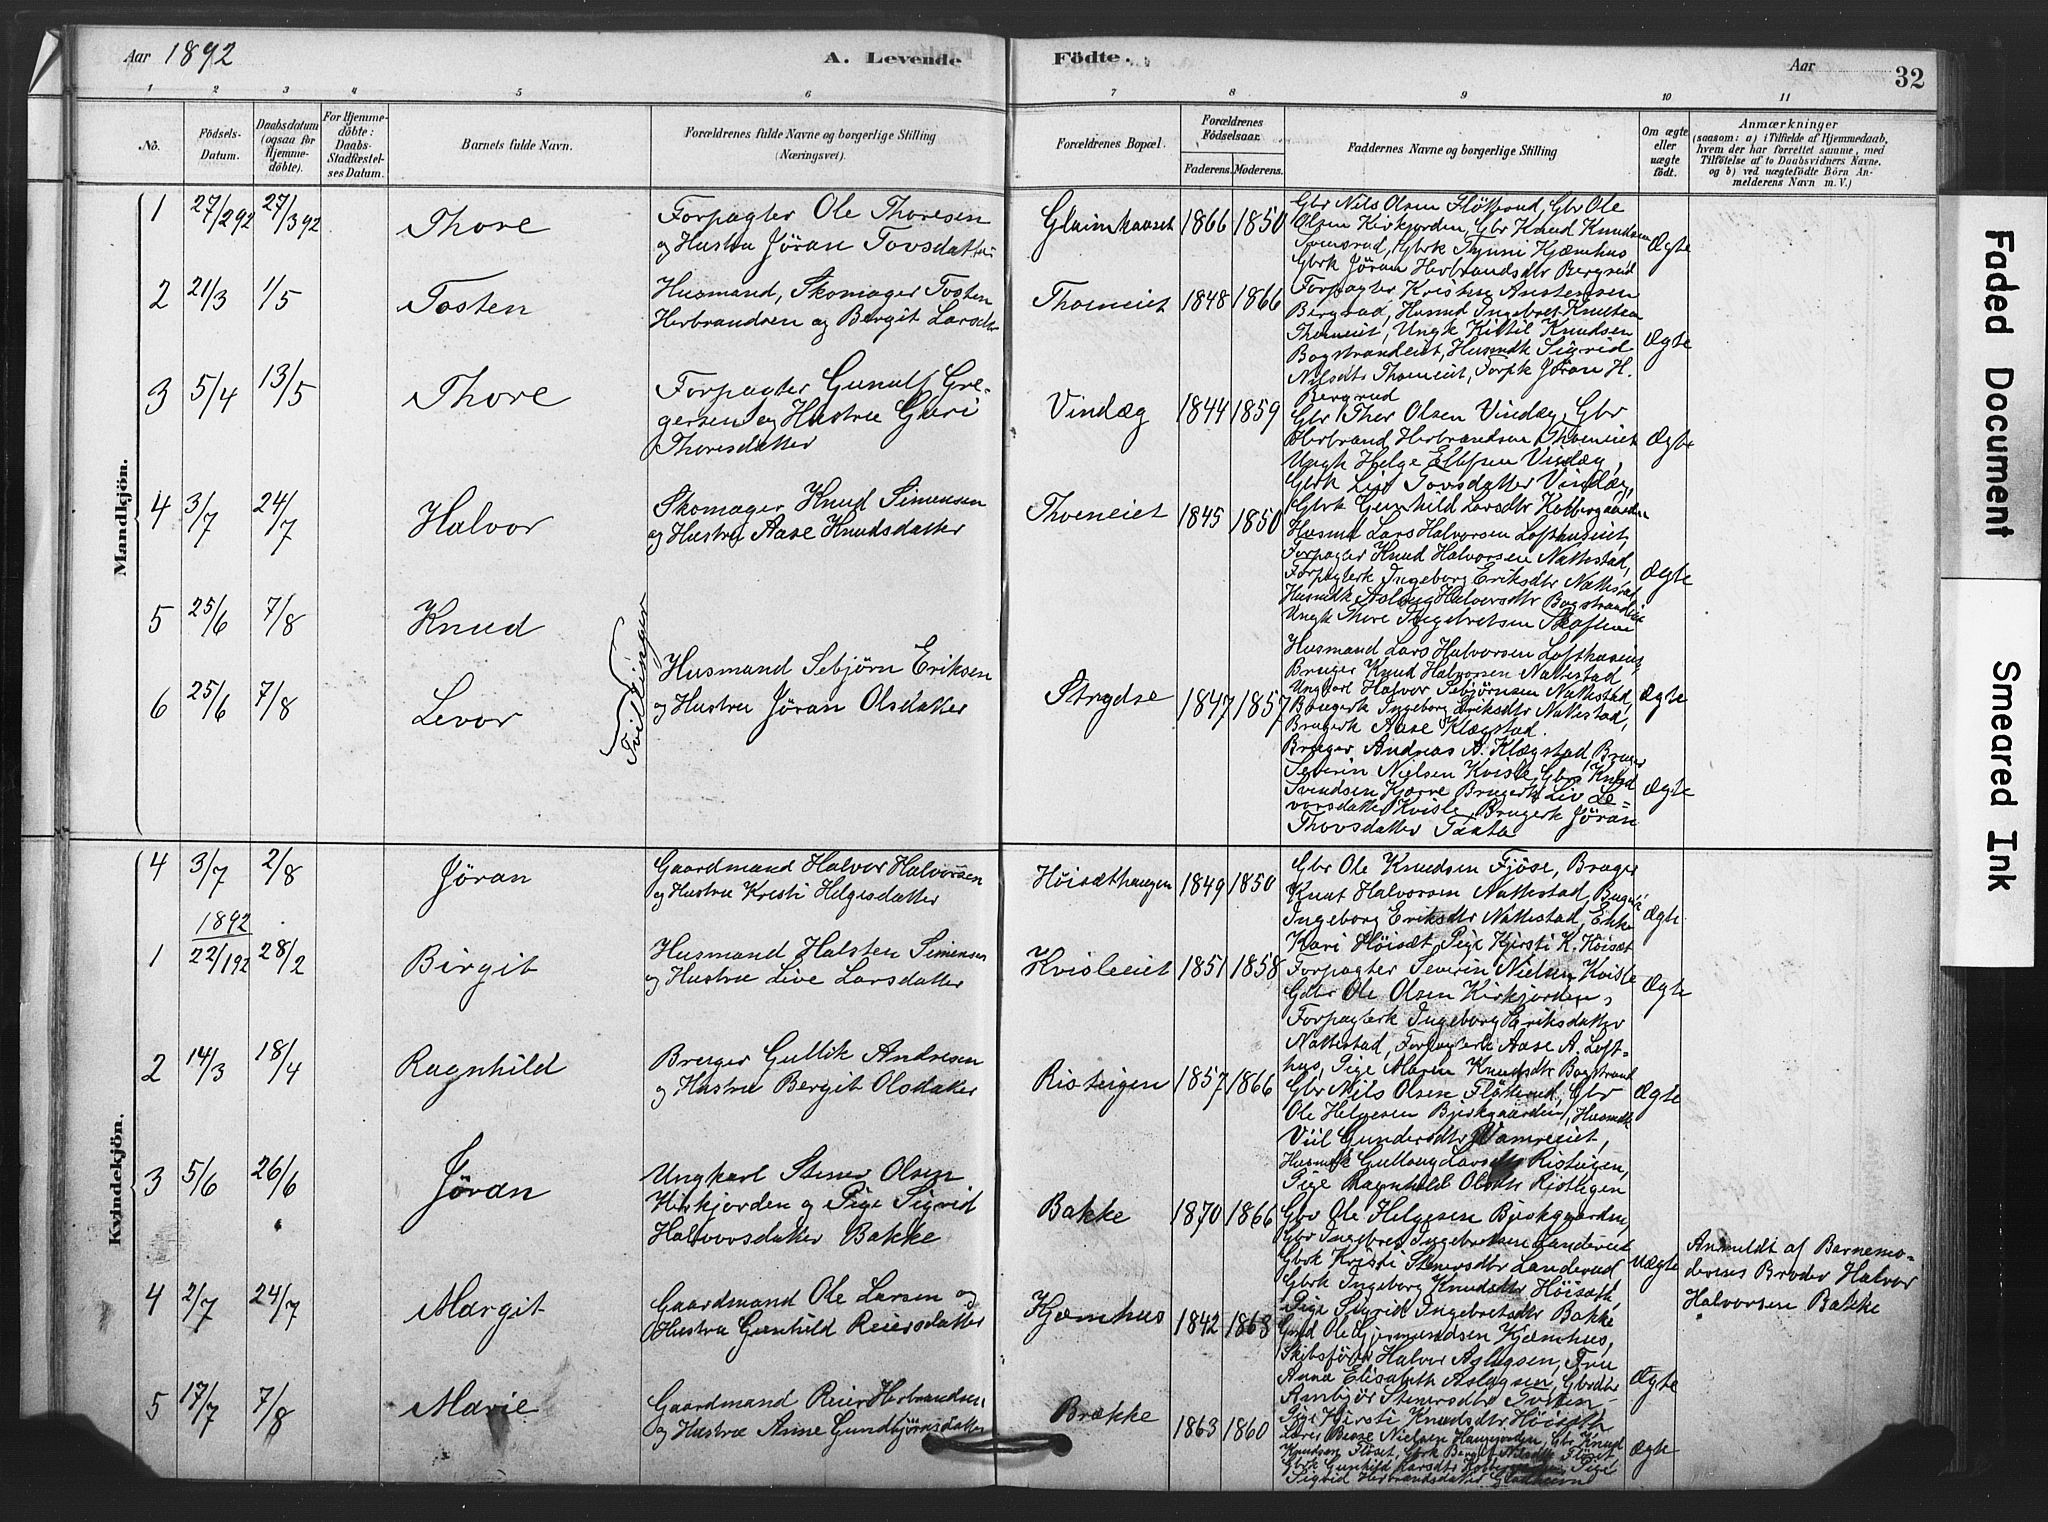 Aar 1892
A. Levende
Födte.
Aar
32
1 2 3 4 5 6 7 8 9 10 11
No.
Födsels-Datum.
Daabsdatum (ogsaa for Hjemmedöbte).
For Hjemmedöbte: Daabs-Stadfæstelses Datum.
Barnets fulde Navn.
Forældrenes fulde Navne og borgerlige Stilling
(Næringsvei).
Forældrenes Bopæl.
Forældrenes Födselsaar.
Faderens. Moderens.
Faddernes Navne og borgerlige Stilling
Om ægte eller uægte födt.
Anmærkninger
(saasom: a) i Tilfælde af Hjemmedaab,
hvem der har forrettet samme, med
Tilföielse af to Daabsvidners Navne,
og b) ved uægtefödte Börn An-
melderens Navn m. V.)
Mandkjön.
1 27/2 92 27/3 92 Thore
Forpagter Ole Thoresen
og Hustru Jöran Tovsdatter
1866 1850
Gbr Nils Olsen Flötterud, Gbr Ole
Olsen Kirkjorden, Gbr Knud Knudsen
Svensrud, Gbrk Kjæmhus
Gbrk Jöran Herbrandsdtr Bergrud
Ægte
2 21/3 1/5 Tosten
Husmand, Skomager Tosten
Herbrandsen og Bergit Larsdtr
Thoeneiet 1848 1866
Forpagter Kristen Anstensen
Bergrud, Husmd Ingebret Knutsen
Thoeneiet, Ungk Kittil Knudsen
Bogstrandeiet, Husmdk Sigrid
Nilsdtr Thoeneiet, Forpk Jöran H.
Bergrud
Ægte
3 5/4 13/5 Thore
Forpagter Gunulf Gre-
gersen og Hustru Guri
Thoresdatter
Vindæg 1844 1859
Gbr Thor Olsen Vindæg, Gbr
Herbrand Herbrandsen Thoeneiet
Ungk Helge Ellefsen Vindæg,
Gbrk Liv Tovsdatter Vindæg,
Gbrk Gunhild Larsdtr
Ægte
4 3/7 24/7 Halvor
Skomager Knud Simensen
og Hustru Aase Knudsdatter
Thoeneiet 1845 1850
Husmd Lars Halvorsen Lofthuseiet,
Forpagter Knud Halvorsen Nattestad,
Forpagterk Ingeborg Eriksdtr Nattestad
Husmdk Aslaug Halvorsdtr
Ungk Thore Ingebretsen
Ægte
5 25/6 7/8 Knud
Tvillinger
Husmand Sebjørn Eriksen
og Hustru Jöran Olsdatter
6 25/6 7/8 Levor
Strydse 1847 1857
Husmand Lars Halvorsen
Bruger Knud Halvorsen Nattestad
Ungkarl Halvor Sebjørnsen Nattestad,
Brugerk Ingeborg Eriksdtr Nattestad,
Brugerk Aase Klægstad.
Ægte
Bruger Andreas A. Klægstad, Bruger
Severin Nielsen Kvisle, Gbr Knud
Svendsen Kjorre Brugerk Liv Le-
vorsdatter Kvisle, Brugerk Jöran
Thovsdatter
Ægte
Kvindekjön.
4 3/7 2/8 Jöran
Gaardmand Halvor Halvorsen
og Hustru Kristi Helgesdatter
Höisæthaugen 1849 1850
Gbr Ole Knudsen Fjöse, Bruger
Knut Halvorsen Nattestad, Brugerk
Ingeborg Eriksdtr Nattestad, Enke
Kari Höisæt, Pige Kjersti K. Höisæt
Ægte
1892
1 22/1 92 28/2 Birgit
Husmand Halsten Simensen
og Hustru Live Larsdatter
Kvisleeiet 1851 1858
Forpagter Severin Nielsen Kvisle
Gdbr Ole Olsen Kirkjorden,
Forpagterk Ingeborg Eriksdatter
Nattestad, Forpagterk Aase A. Loft-
hus, Pige Maren Knudsdtr Bogstrand
Ægte
2 14/3 18/4 Ragnhild
Bruger Gullik Andresen
og Hustru Bergit Olsdatter
Risteigen 1857 1866
Gbr Nils Olsen Flötterud, Gbr
Ole Helgesen Bjerkgaarden, Husmdk
Viil Gundersdtr
Husmdk Gullaug Larsdtr Risteigen,
Pige Ragnhild Olsdtr Risteigen
Ægte
3 5/6 26/6 Jöran
Ungkarl Stener Olsen
Kirkjorden og Pige Sigrid
Halvorsdatter Bakke
Bakke 1870 1866
Gbr Ole Helgesen Bjerkgaarden,
Gbr Ingebret Ingebretsen
Gbrk Kristi Stenersdtr Landerud
Gbrk Ingeborg Knudsdtr Höisæt,
Pige Sigrid Ingebretsdtr Bakke
uægte
Anmeldt af Barnemo-
derens Broder Halvor
Halvorsen Bakke
4 2/7 24/7 Margit
Gaardmand Ole Larsen og
Hustru Gunhild Reiersdatter
Kjæmhus 1842 1863
Gmd Ole Gjermundsen Kjæmhus,
Skibsfører Halvor Aslagsen, Fru
Anna Elisabeth Aslagsen, Gbrdtr
Anbjör Stenersdtr
Pige Kirsti Knudsdtr Höisæth
Ægte
5 17/7 7/8 Marie
Gaardmand Reier Herbrandsen
og Hustru Anne Gundbjörnsdatter
Brække 1863 1860
Lærer Nielsen Gbr Knud
Knudsen Gbrk Bergit
Gbrk Gunhild Larsdtr Pige
Sigrid Herbrandsdatter
Ægte
Faded Document
Smeared Ink